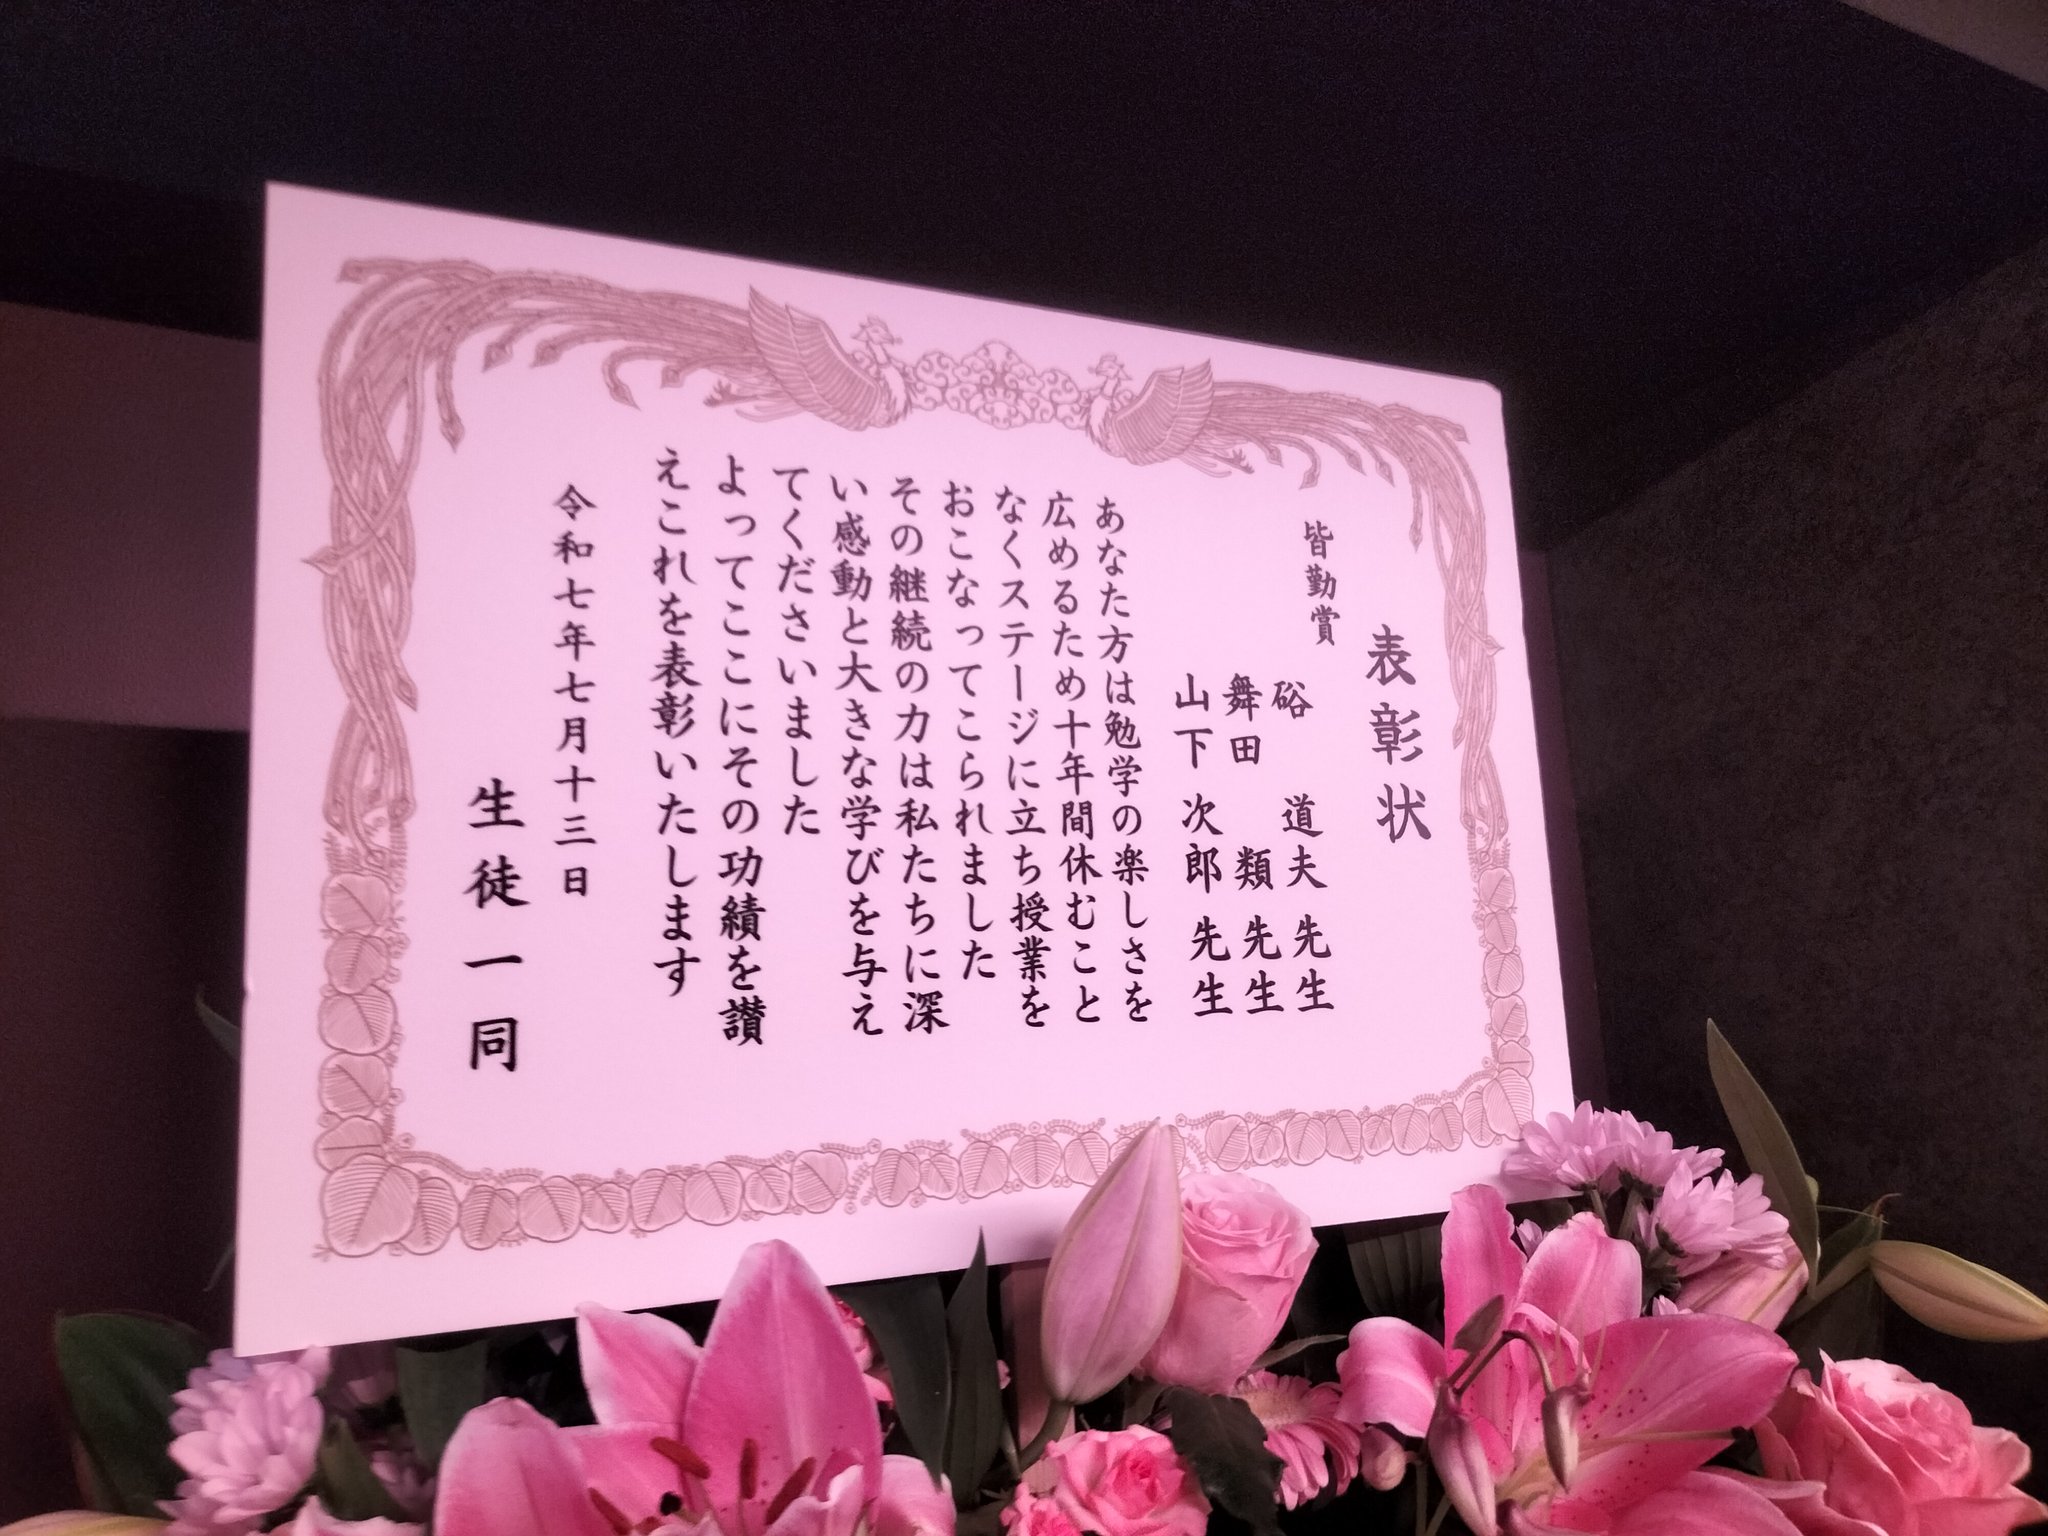 表彰状
皆勤賞
硲 道夫 先生
舞田 類 先生
山下 次郎 先生
あなた方は勉学の楽しさを
広めるため十年間休むこと
なくステージに立ち授業を
おこなってこられました
その継続の力は私たちに深
い感動と大きな学びを与え
てくださいました
よってここにその功績を讃
えこれを表彰いたします
令和七年七月十三日
生徒一同